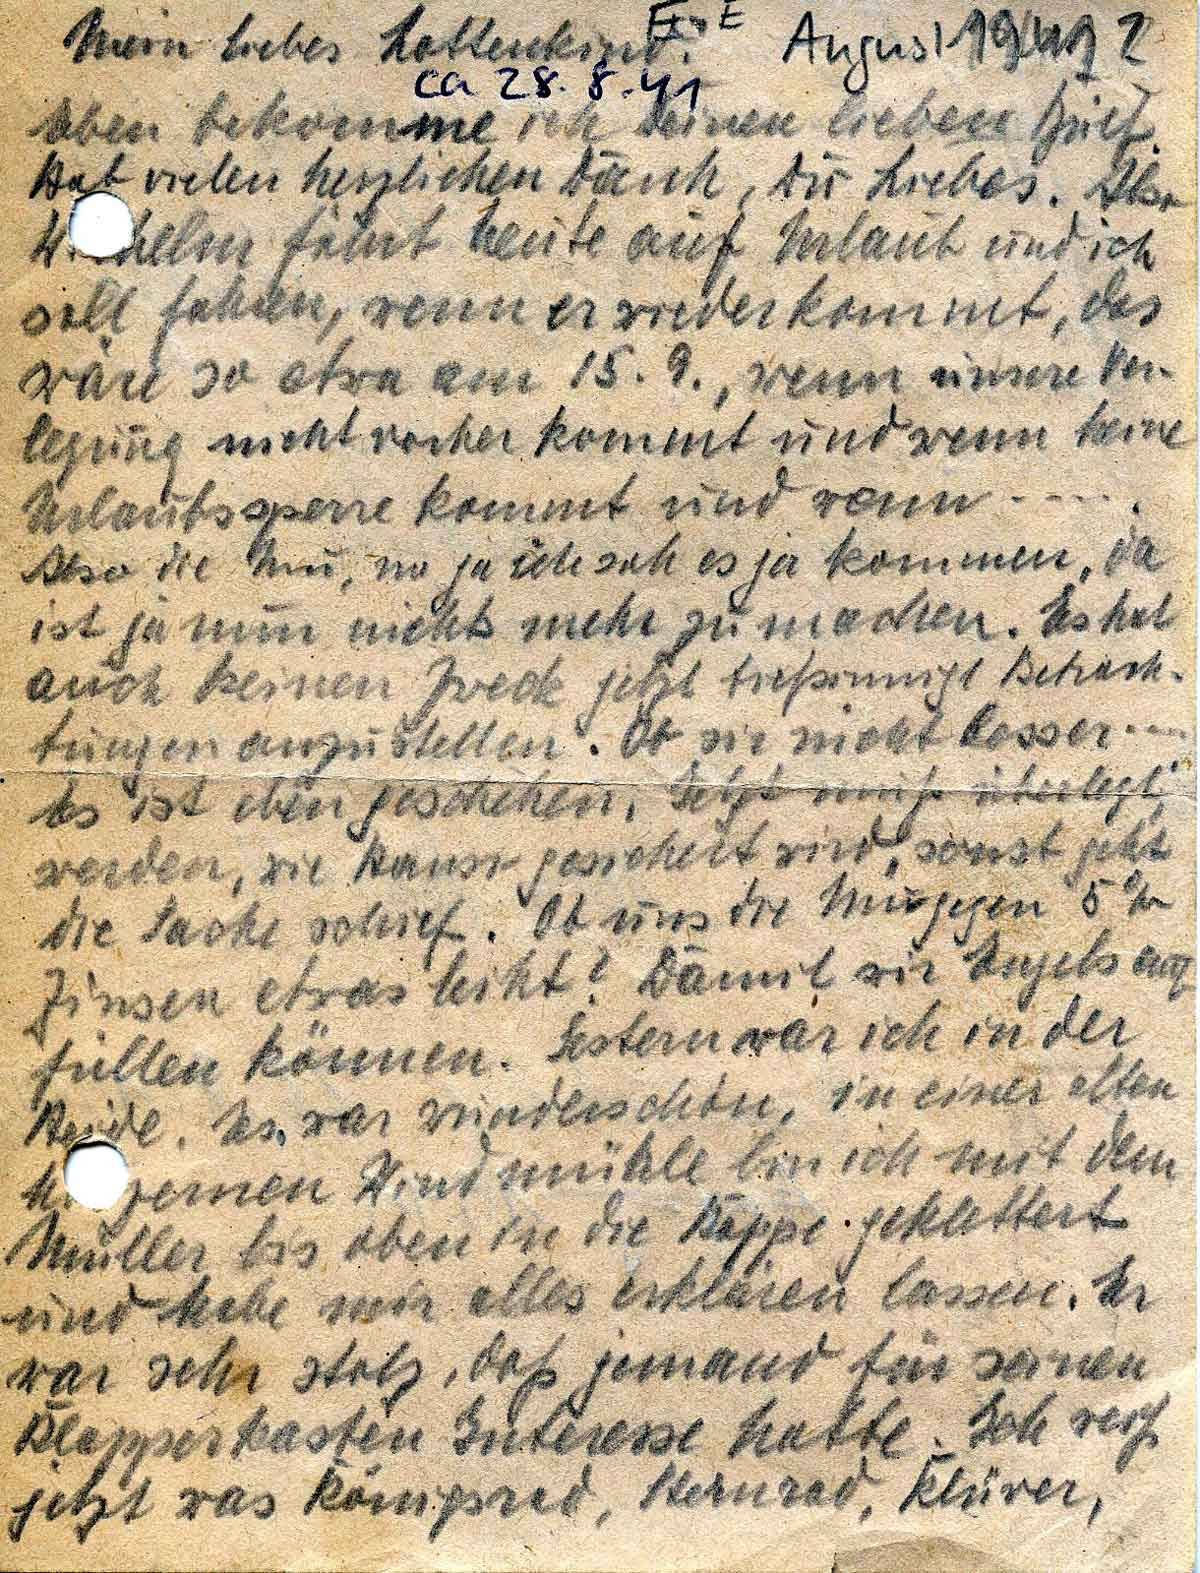 Mein liebes Lottenkind! August 1941 2
ca 28.8.41
Eben bekomme ich Deinen lieben Brief.
Hab vielen herzlichen Dank, Du Liebes. Also
W helm fährt heute auf Urlaub und ich
soll fahren, wenn er wiederkommt, das
wäre so etwa am 15. 9., wenn unsere Ver-
legung nicht vorher kommt und wenn keine
Urlaubssperre kommt und wenn - - - - .
Also die Mu, na ja ich sah es ja kommen, da
ist ja nun nichts mehr zu machen. Es hat
auch keinen Zweck jetzt tiefsinnige Betrach-
tungen anzustellen. Ob sie nicht besser - - -
Es ist eben geschehen. Jetzt muß überlegt
werden, wie Hansi gesichert wird, sonst geht
die Sache schief. Ob uns die Mu gegen 5%
Zinsen etwas leiht? Damit wir Engels aus
füllen können. Gestern war ich in der
Heide. Es war wunderschön, in einer alten
Windmühle bin ich mit dem
Müller bis oben in die Kappe geklettert
und habe mir alles erklären lassen. Er
war sehr stolz, daß jemand für seinen
Klapperkasten Interesse hatte. Ich weiß
jetzt was Königsrad, Sternrad, Klüver,